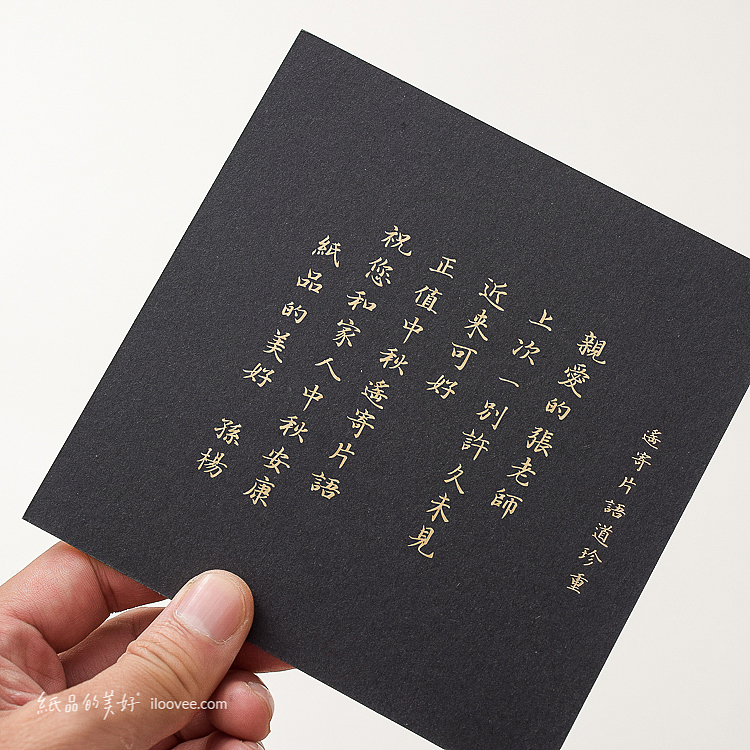 遙寄片語道珍重
親愛的張老師
上次一別許久未見
近來可好
正值中秋遙寄片語
祝您和家人中秋安康
紙品的美好
孫楊
紙品的美好 iloovee.com